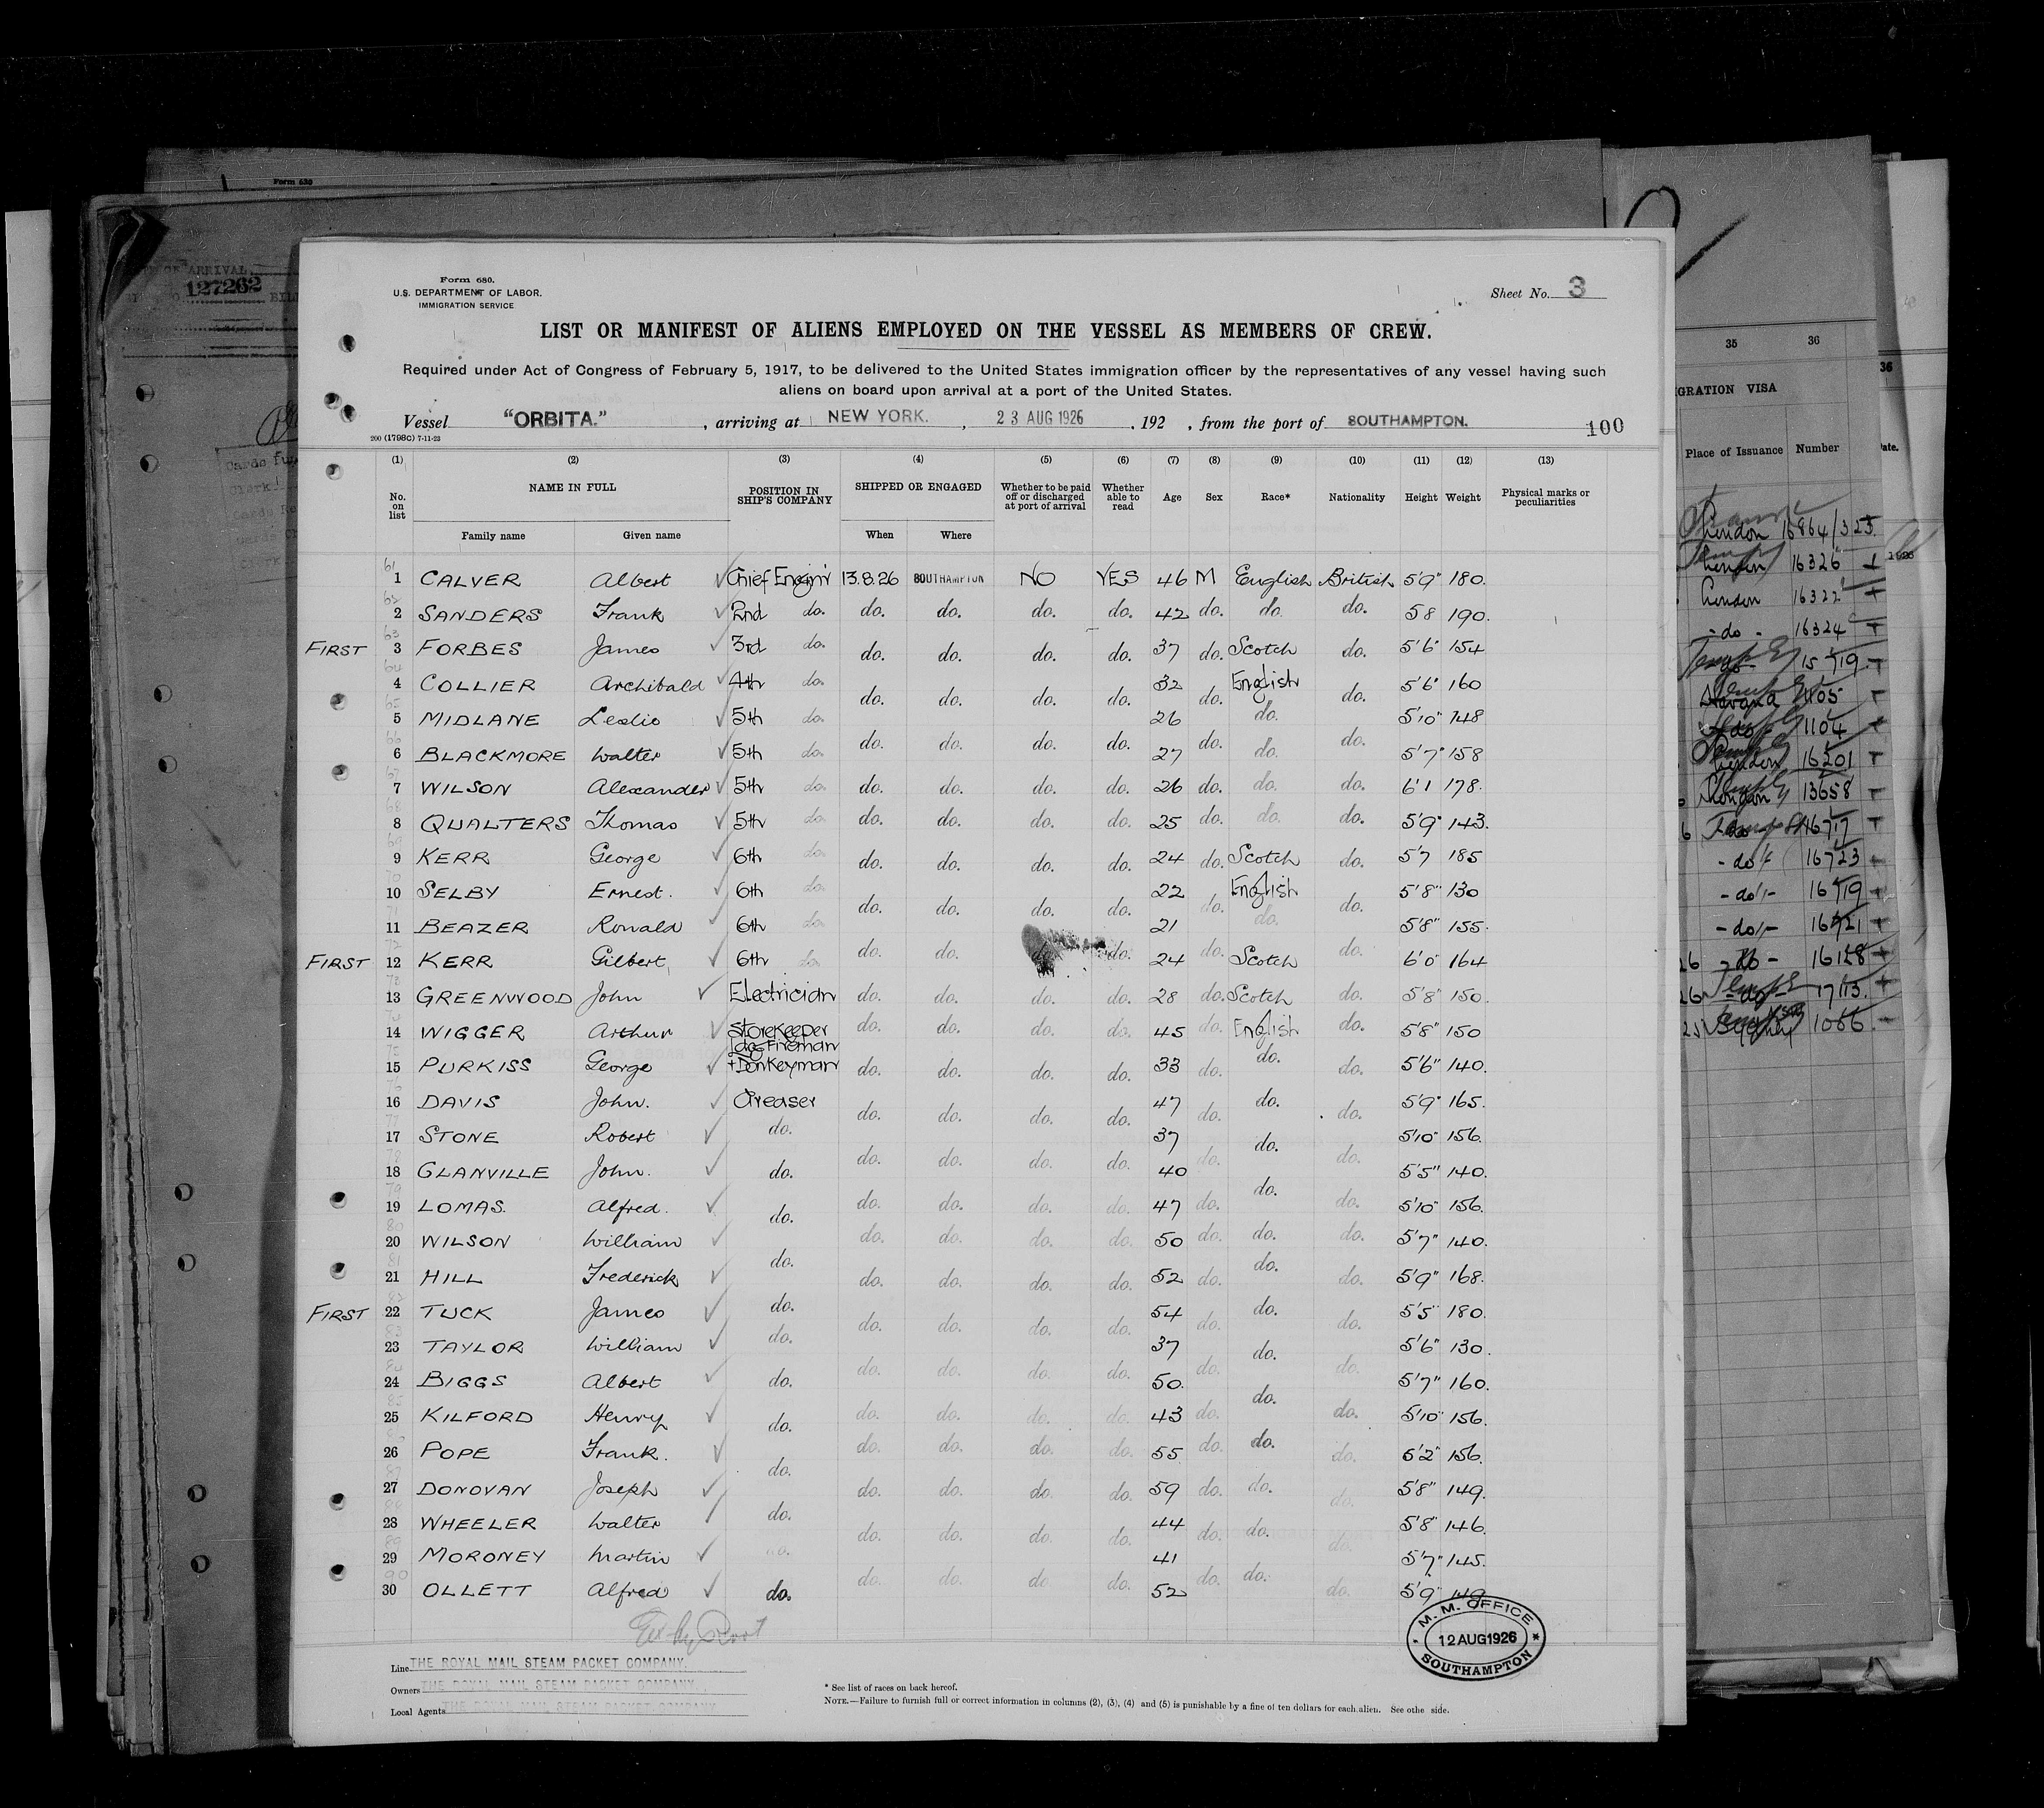 Form 630
OF ARRIVAL
127262
Form 680.
U.S. DEPARTMENT OF LABOR.
IMMIGRATION SERVICE
Sheet No. 3
LIST OR MANIFEST OF ALIENS EMPLOYED ON THE VESSEL AS MEMBERS OF CREW.
Required under Act of Congress of February 5, 1917, to be delivered to the United States immigration officer by the representatives of any vessel having such
aliens on board upon arrival at a port of the United States.
Vessel "ORBITA." , arriving at NEW YORK. , 23 AUG 1926 , 192 , from the port of SOUTHAMPTON. 100
200 (1798C) 7-11-23
(1) (2) (3) (4) (5) (6) (7) (8) (9) (10) (11) (12) (13)
No. on list NAME IN FULL POSITION IN SHIP'S COMPANY SHIPPED OR ENGAGED Whether to be paid off or discharged at port of arrival Whether able to read Age Sex Race* Nationality Height Weight Physical marks or peculiarities
Family name Given name When Where
61 1 CALVER Albert Chief Engin'r 13.8.26 SOUTHAMPTON NO YES 46 M English British 5'9" 180.
62 2 SANDERS Frank 2nd do. do. do. do. do. 42 do. do. do. 5 8 190.
FIRST 63 3 FORBES James 3rd do. do. do. do. do. 37 do. Scotch do. 5'6" 154
64 4 COLLIER Archibald 4th do. do. do. do. do. 32 do. English do. 5'6" 160
65 5 MIDLANE Leslie 5th do. do. do. do. do. 26 do. do. do. 5'10" 148
66 6 BLACKMORE Walter 5th do. 27 do. 5'7" 158
67 7 WILSON Alexander 5th do. do. do. do. do. 26 do. do. do. 6'1 178.
68 8 QUALTERS Thomas 5th do. do. do. do. do. 25 do. do. do. 5'9" 143.
69 9 KERR George 6th do. do. do. do. do. 24 do. Scotch do. 5'7 185
70 10 SELBY Ernest. 6th do. do. do. do. do. 22 do. English do. 5'8" 130
71 11 BEAZER Ronald 6th do. 21 do. 5'8" 155.
FIRST 72 12 KERR Gilbert 6th do. do. do. do. do. 24 do. Scotch do. 6'0" 164
73 13 GREENWOOD John Electrician do. do. do. do. 28 do. Scotch do. 5'8" 150.
74 14 WIGGER Arthur Storekeeper do. do. do. do. 45 do. English do. 5'8" 150
75 15 PURKISS George Ldg Fireman + Donkeyman do. do. do. do. 33 do. do. do. 5'6" 140.
76 16 DAVIS John. Greaser do. do. do. do. 47 do. do. do. 5'9" 165.
77 17 STONE Robert do. 37 do. 5'10" 156.
78 18 GLANVILLE John. do. do. do. do. do. 40 do. do. do. 5'5" 140.
79 19 LOMAS. Alfred. do. do. do. do. do. 47 do. do. 5'10" 156.
80 20 WILSON William do. do. do. do. 50 do. do. do. 5'7" 140.
81 21 HILL Frederick do. do. do. do. do. 52 do. do. do. 5'9" 168.
FIRST 82 22 TUCK James do. do. do. do. do. 54 do. do. do. 5'5" 180.
83 23 TAYLOR William do. 37 do. 5'6" 130.
84 24 BIGGS Albert do. do. do. do. do. 50. do. do. do. 5'7" 160.
85 25 KILFORD Henry do. do. do. do. do. 43 do. do. 5'10" 156.
86 26 POPE Frank. do. do. do. do. do. 55 do. do. do. 6'2" 156.
87 27 DONOVAN Joseph do. do. do. do. 59 do. do. do. 5'8" 149.
88 28 WHEELER Walter do. do. do. do. do. 44 do. do. do. 5'8" 146.
89 29 MORONEY Martin do. 41 5'7" 145.
90 30 OLLETT Alfred do. do. do. do. do. 52 do. do. do. 5'9" 149.
M. M. OFFICE
12 AUG 1926
SOUTHAMPTON
Line THE ROYAL MAIL STEAM PACKET COMPANY.
Owners THE ROYAL MAIL STEAM PACKET COMPANY.
Local Agents THE ROYAL MAIL STEAM PACKET COMPANY
* See list of races on back hereof.
NOTE.—Failure to furnish full or correct information in columns (2), (3), (4) and (5) is punishable by a fine of ten dollars for each alien. See othe side.
35 36
36
GRATION VISA
Place of Issuance Number
ate.
London 16864/323
London 16326
1926
London 16322
- do - 16324
1105
1104
London 16201
London 13658
- do - 16723
- do - 16719
- do - 16721
26 - do - 16128
26 - do - 17113
25 Sydney 1066